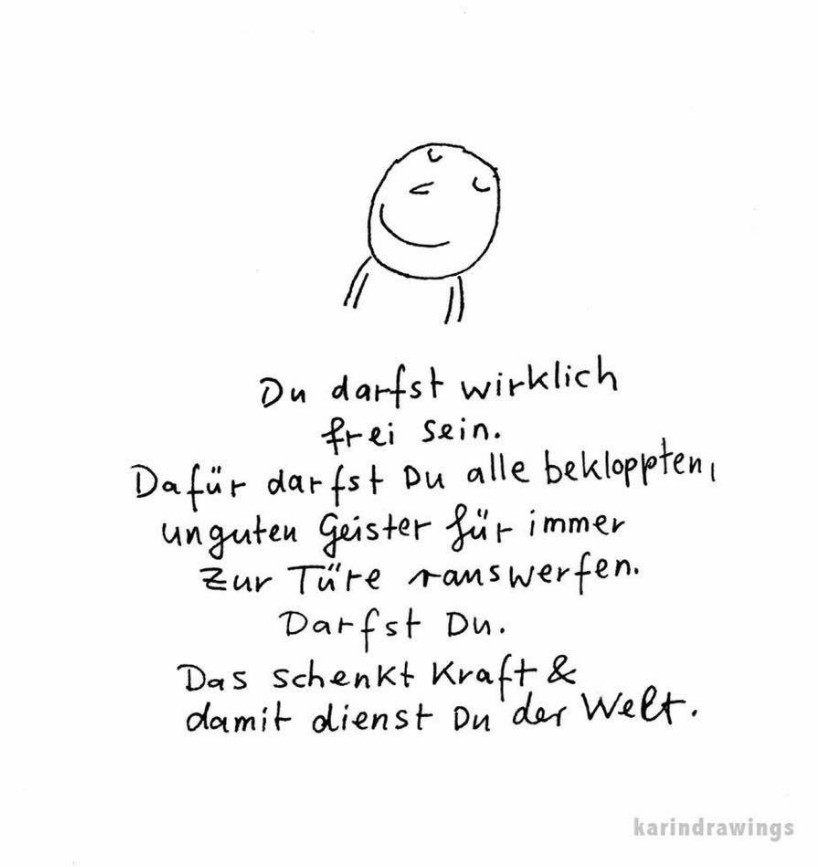 Du darfst wirklich
frei sein.
Dafür darfst Du alle bekloppten,
unguten Geister für immer
zur Türe rauswerfen.
Darfst Du.
Das schenkt Kraft &
damit dienst Du der Welt.
karindrawings